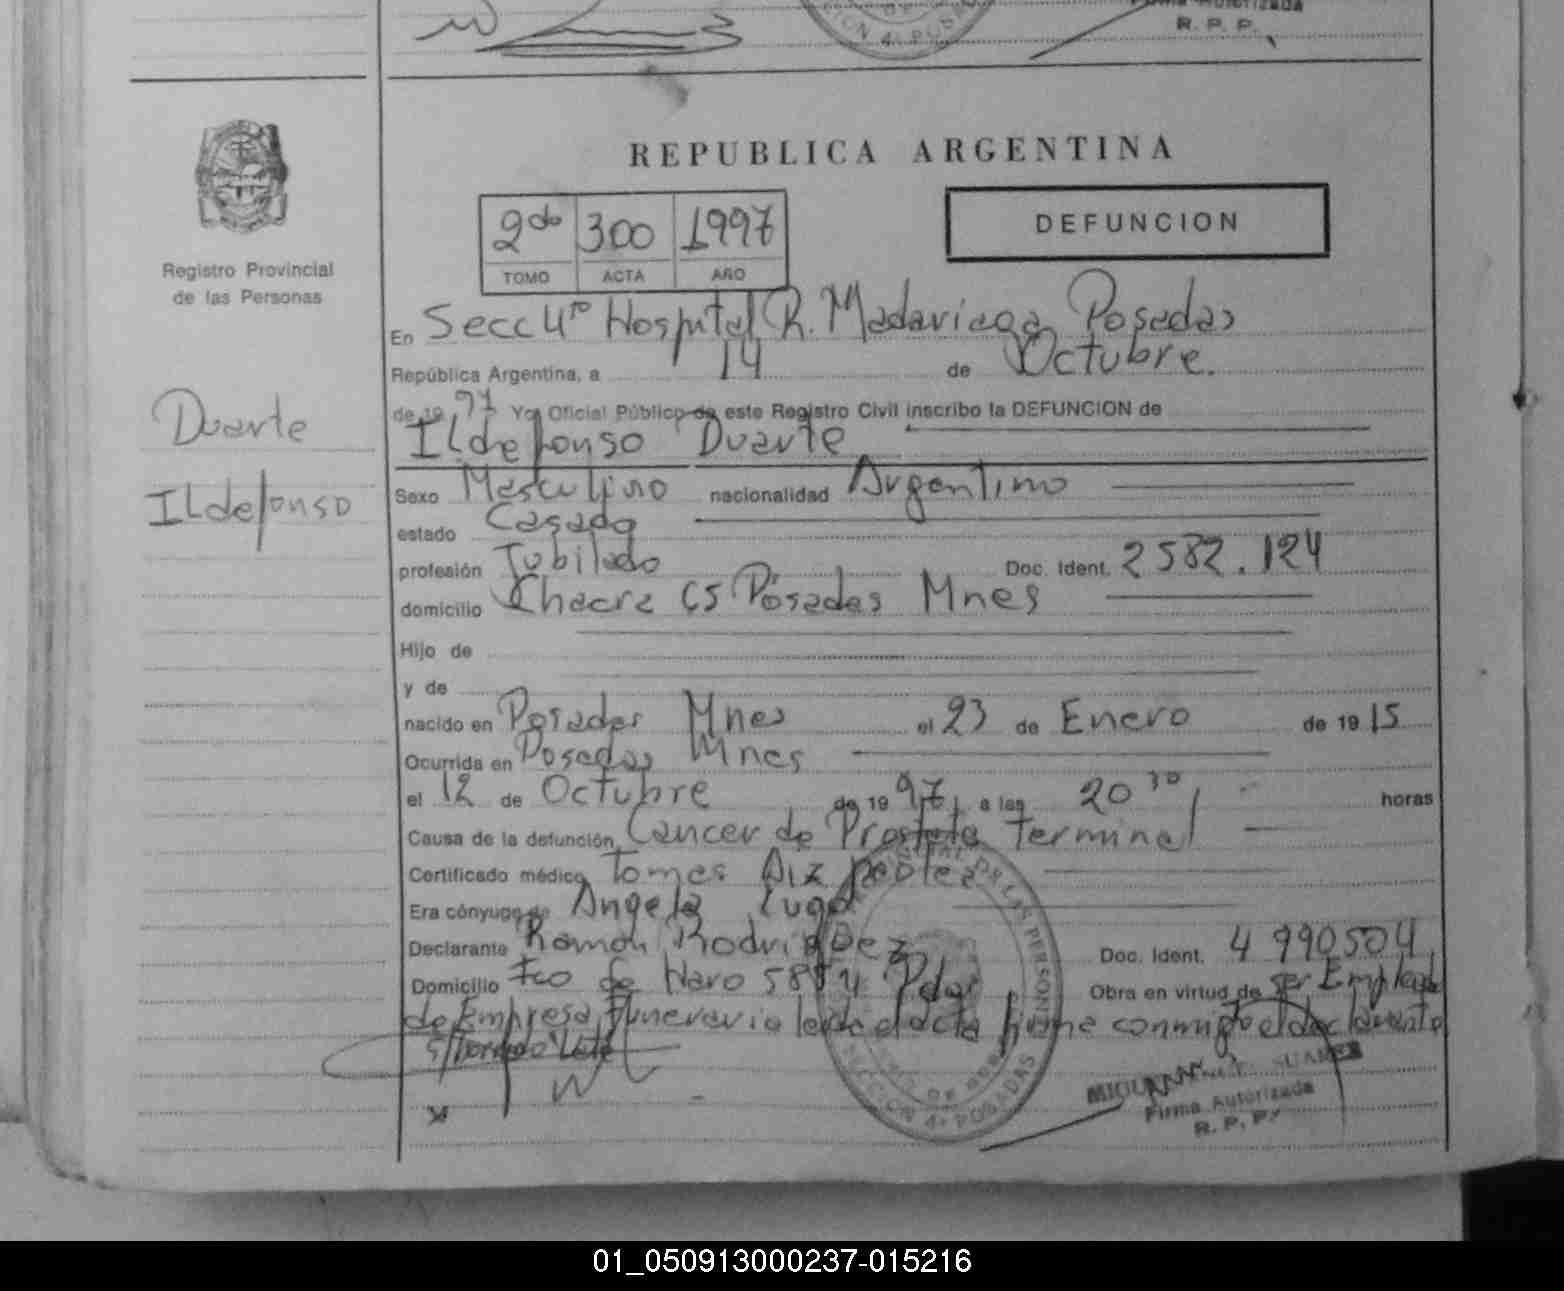 Firma Autorizada
R. P. P.
REPUBLICA ARGENTINA
2do 300 1997
TOMO ACTA AÑO
DEFUNCION
Registro Provincial
de las Personas
En Secc 4ta Hospital R. Madariaga Posadas
República Argentina, a 14 de Octubre.
de 19 97 Yo, Oficial Público de este Registro Civil inscribo la DEFUNCION de
Duarte
Ildefonso
Ildefonso Duarte
Sexo Masculino nacionalidad Argentino
estado Casado
profesión Jubilado Doc. Ident. 2582.124
domicilio Chacra 65 Posadas Mnes
Hijo de
y de
nacido en Posadas Mnes el 23 de Enero de 19 15
Ocurrida en Posadas Mnes
el 12 de Octubre de 19 97 a las 20 30 horas
Causa de la defunción Cancer de Prostata terminal
Certificado médico Tomas Diz
Era cónyuge de Angela Lugo
Declarante Ramon Rodriguez Doc. Ident. 4 990504
Domicilio Fco de Haro Pdas Obra en virtud de ser Empleado
de Empresa Funeraria leida el acta firme conmigo el declarante
SECCION 4a POSADAS
Firma Autorizada
R. P. P.
01_050913000237-015216